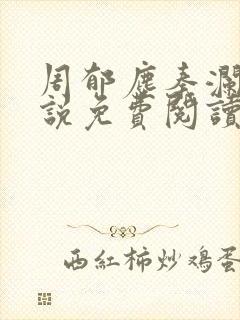 周郁塵秦瀾
說免費閱讀
西紅柿炒鸡蛋